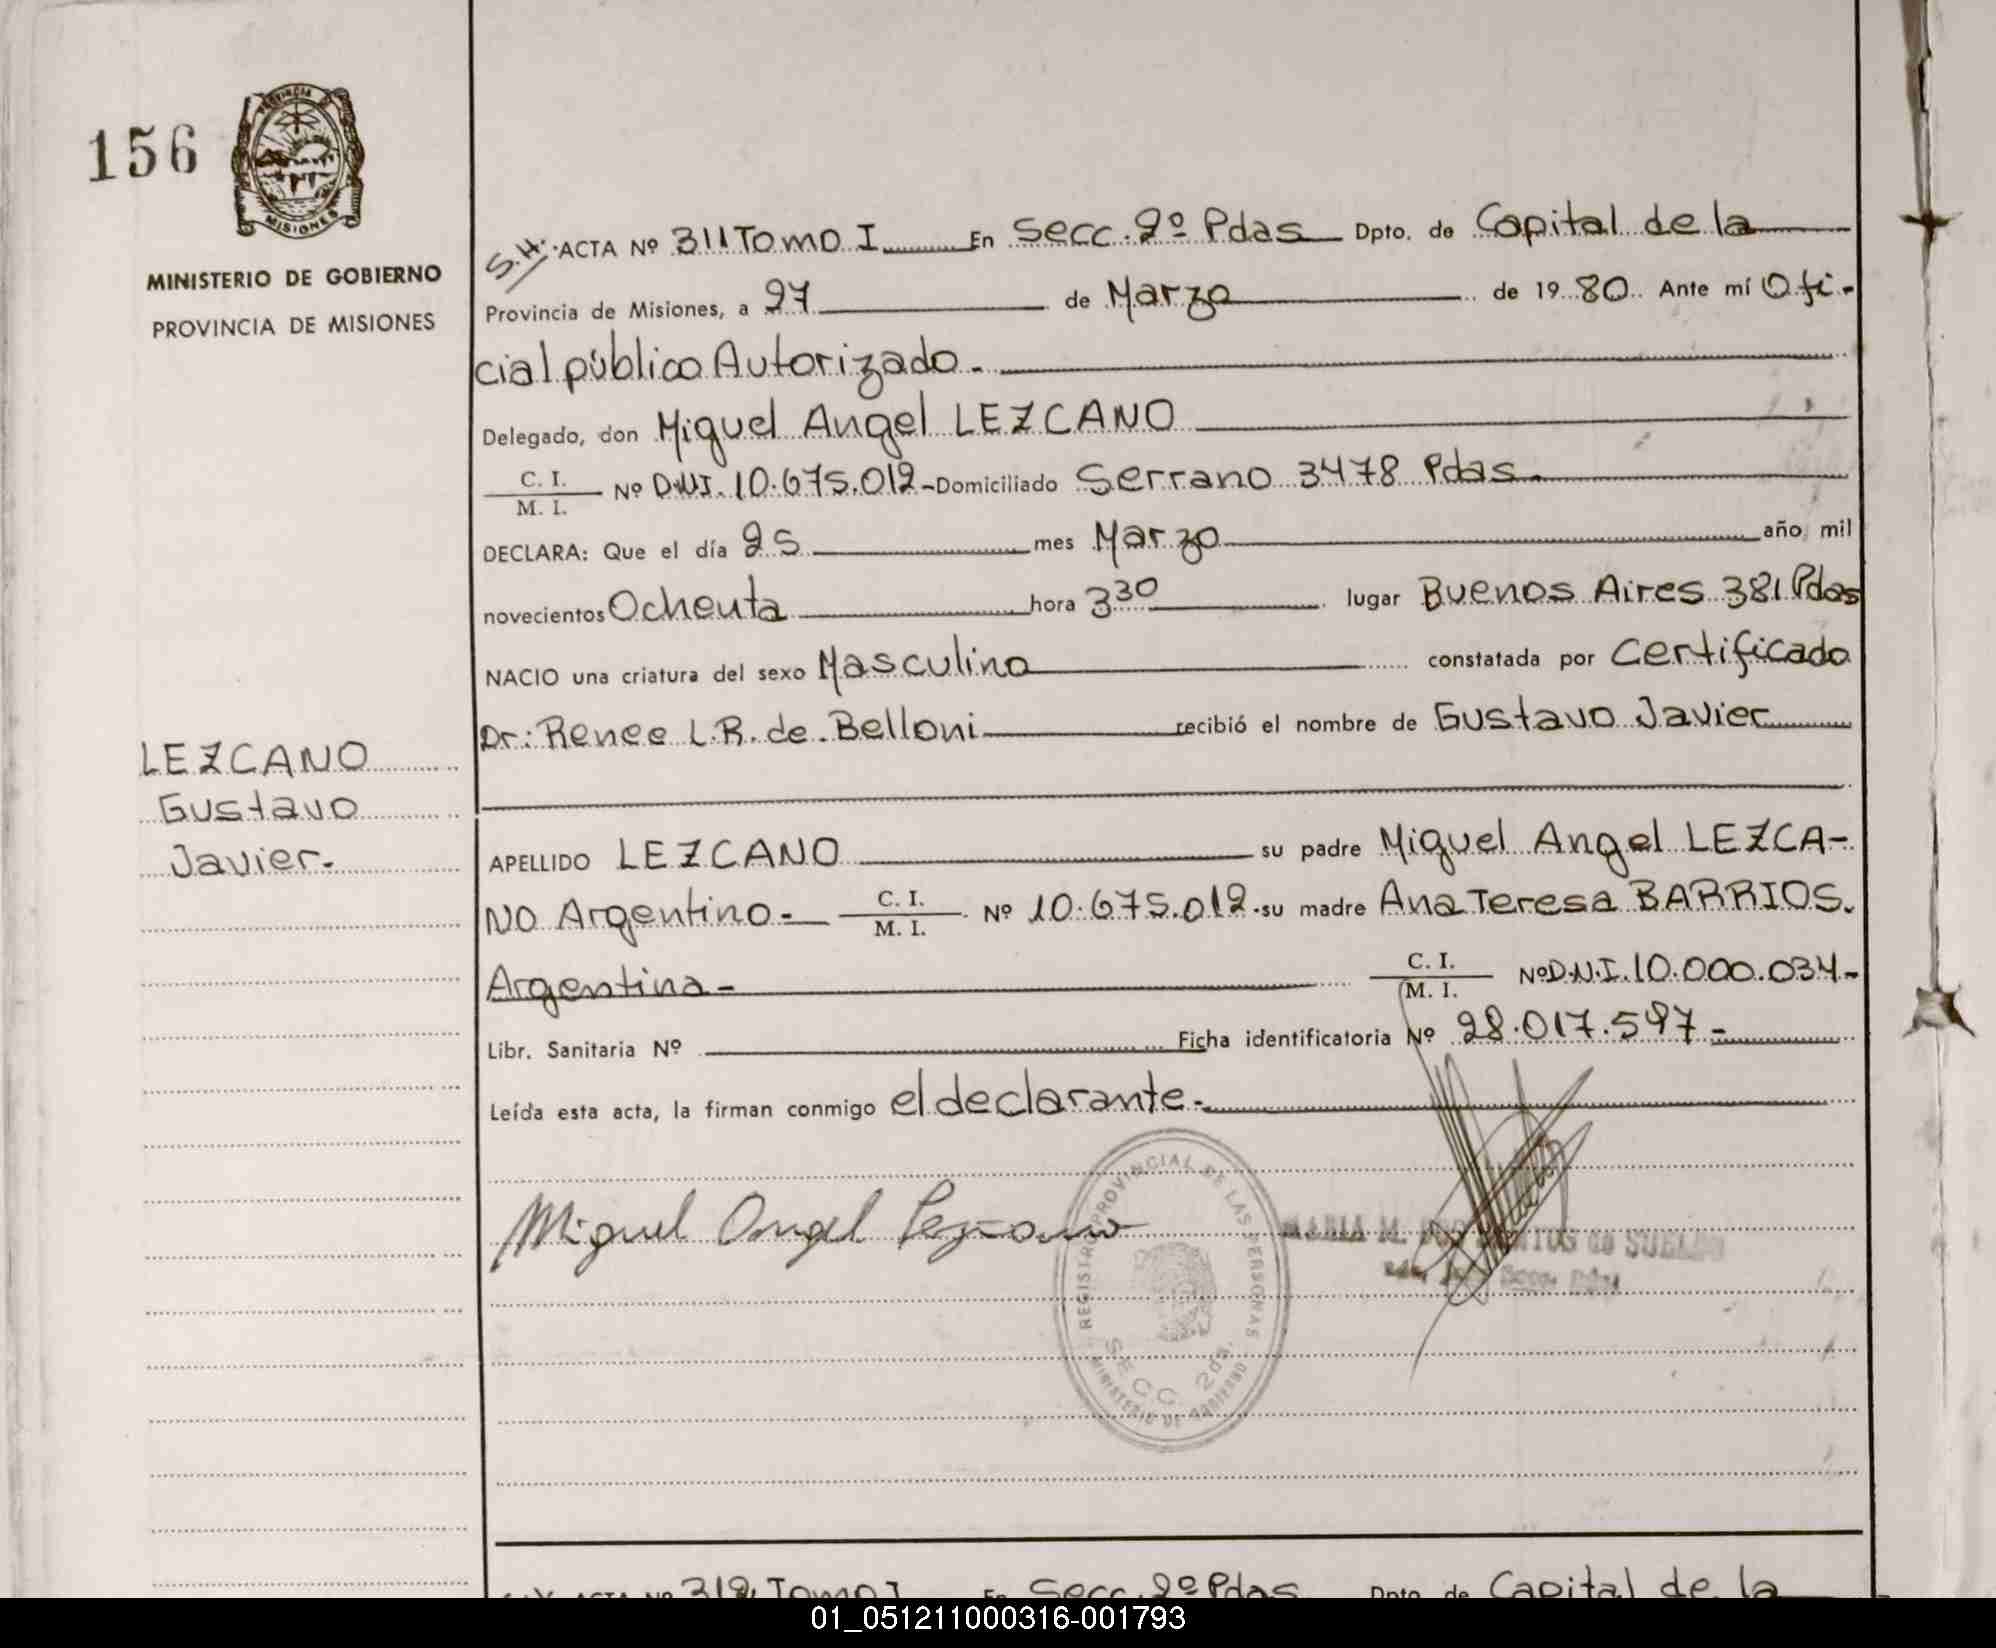 156
PROVINCIA DE
MISIONES
MINISTERIO DE GOBIERNO
PROVINCIA DE MISIONES
S.H. ACTA Nº 311 Tomo I En Secc. 2º Pdas Dpto. de Capital de la
Provincia de Misiones, a 27 de Marzo de 1980. Ante mí Ofi-
cial público Autorizado.
Delegado, don Miguel Angel LEZCANO
C. I.
M. I. Nº D.N.I. 10.675.012 - Domiciliado Serrano 3478 Pdas.
DECLARA: Que el día 25 mes Marzo año mil
novecientos Ochenta hora 3 30 lugar Buenos Aires 381 Pdas
NACIO una criatura del sexo Masculino constatada por Certificado
Dr: Renee L.R. de Belloni recibió el nombre de Gustavo Javier
LEZCANO
Gustavo
Javier.-
APELLIDO LEZCANO su padre Miguel Angel LEZCA-
NO Argentino - C. I.
M. I. Nº 10.675.012 - su madre Ana Teresa BARRIOS.
Argentina - C. I.
M. I. Nº D.N.I. 10.000.034-
Libr. Sanitaria Nº Ficha identificatoria Nº 28.017.597-
Leída esta acta, la firman conmigo el declarante.-
Miguel Angel Lezcano
REGISTRO PROVINCIAL DE LAS PERSONAS
SECC. 2da.
MINISTERIO DE GOBIERNO
MARIA M. de SUELDO
Secc.
ACTA Nº 312 Tomo I En Secc. 2º Pdas Dpto. de Capital de la
01_051211000316-001793